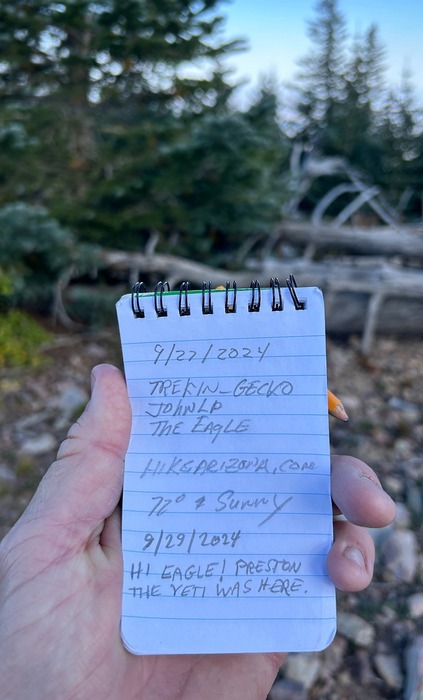 9/22/2024
TREKIN_GECKO
JOHNLP
THE EAGLE
HIKEARIZONA.COM
72° & Sunny
9/29/2024
HI EAGLE! PRESTON
THE YETI WAS HERE.